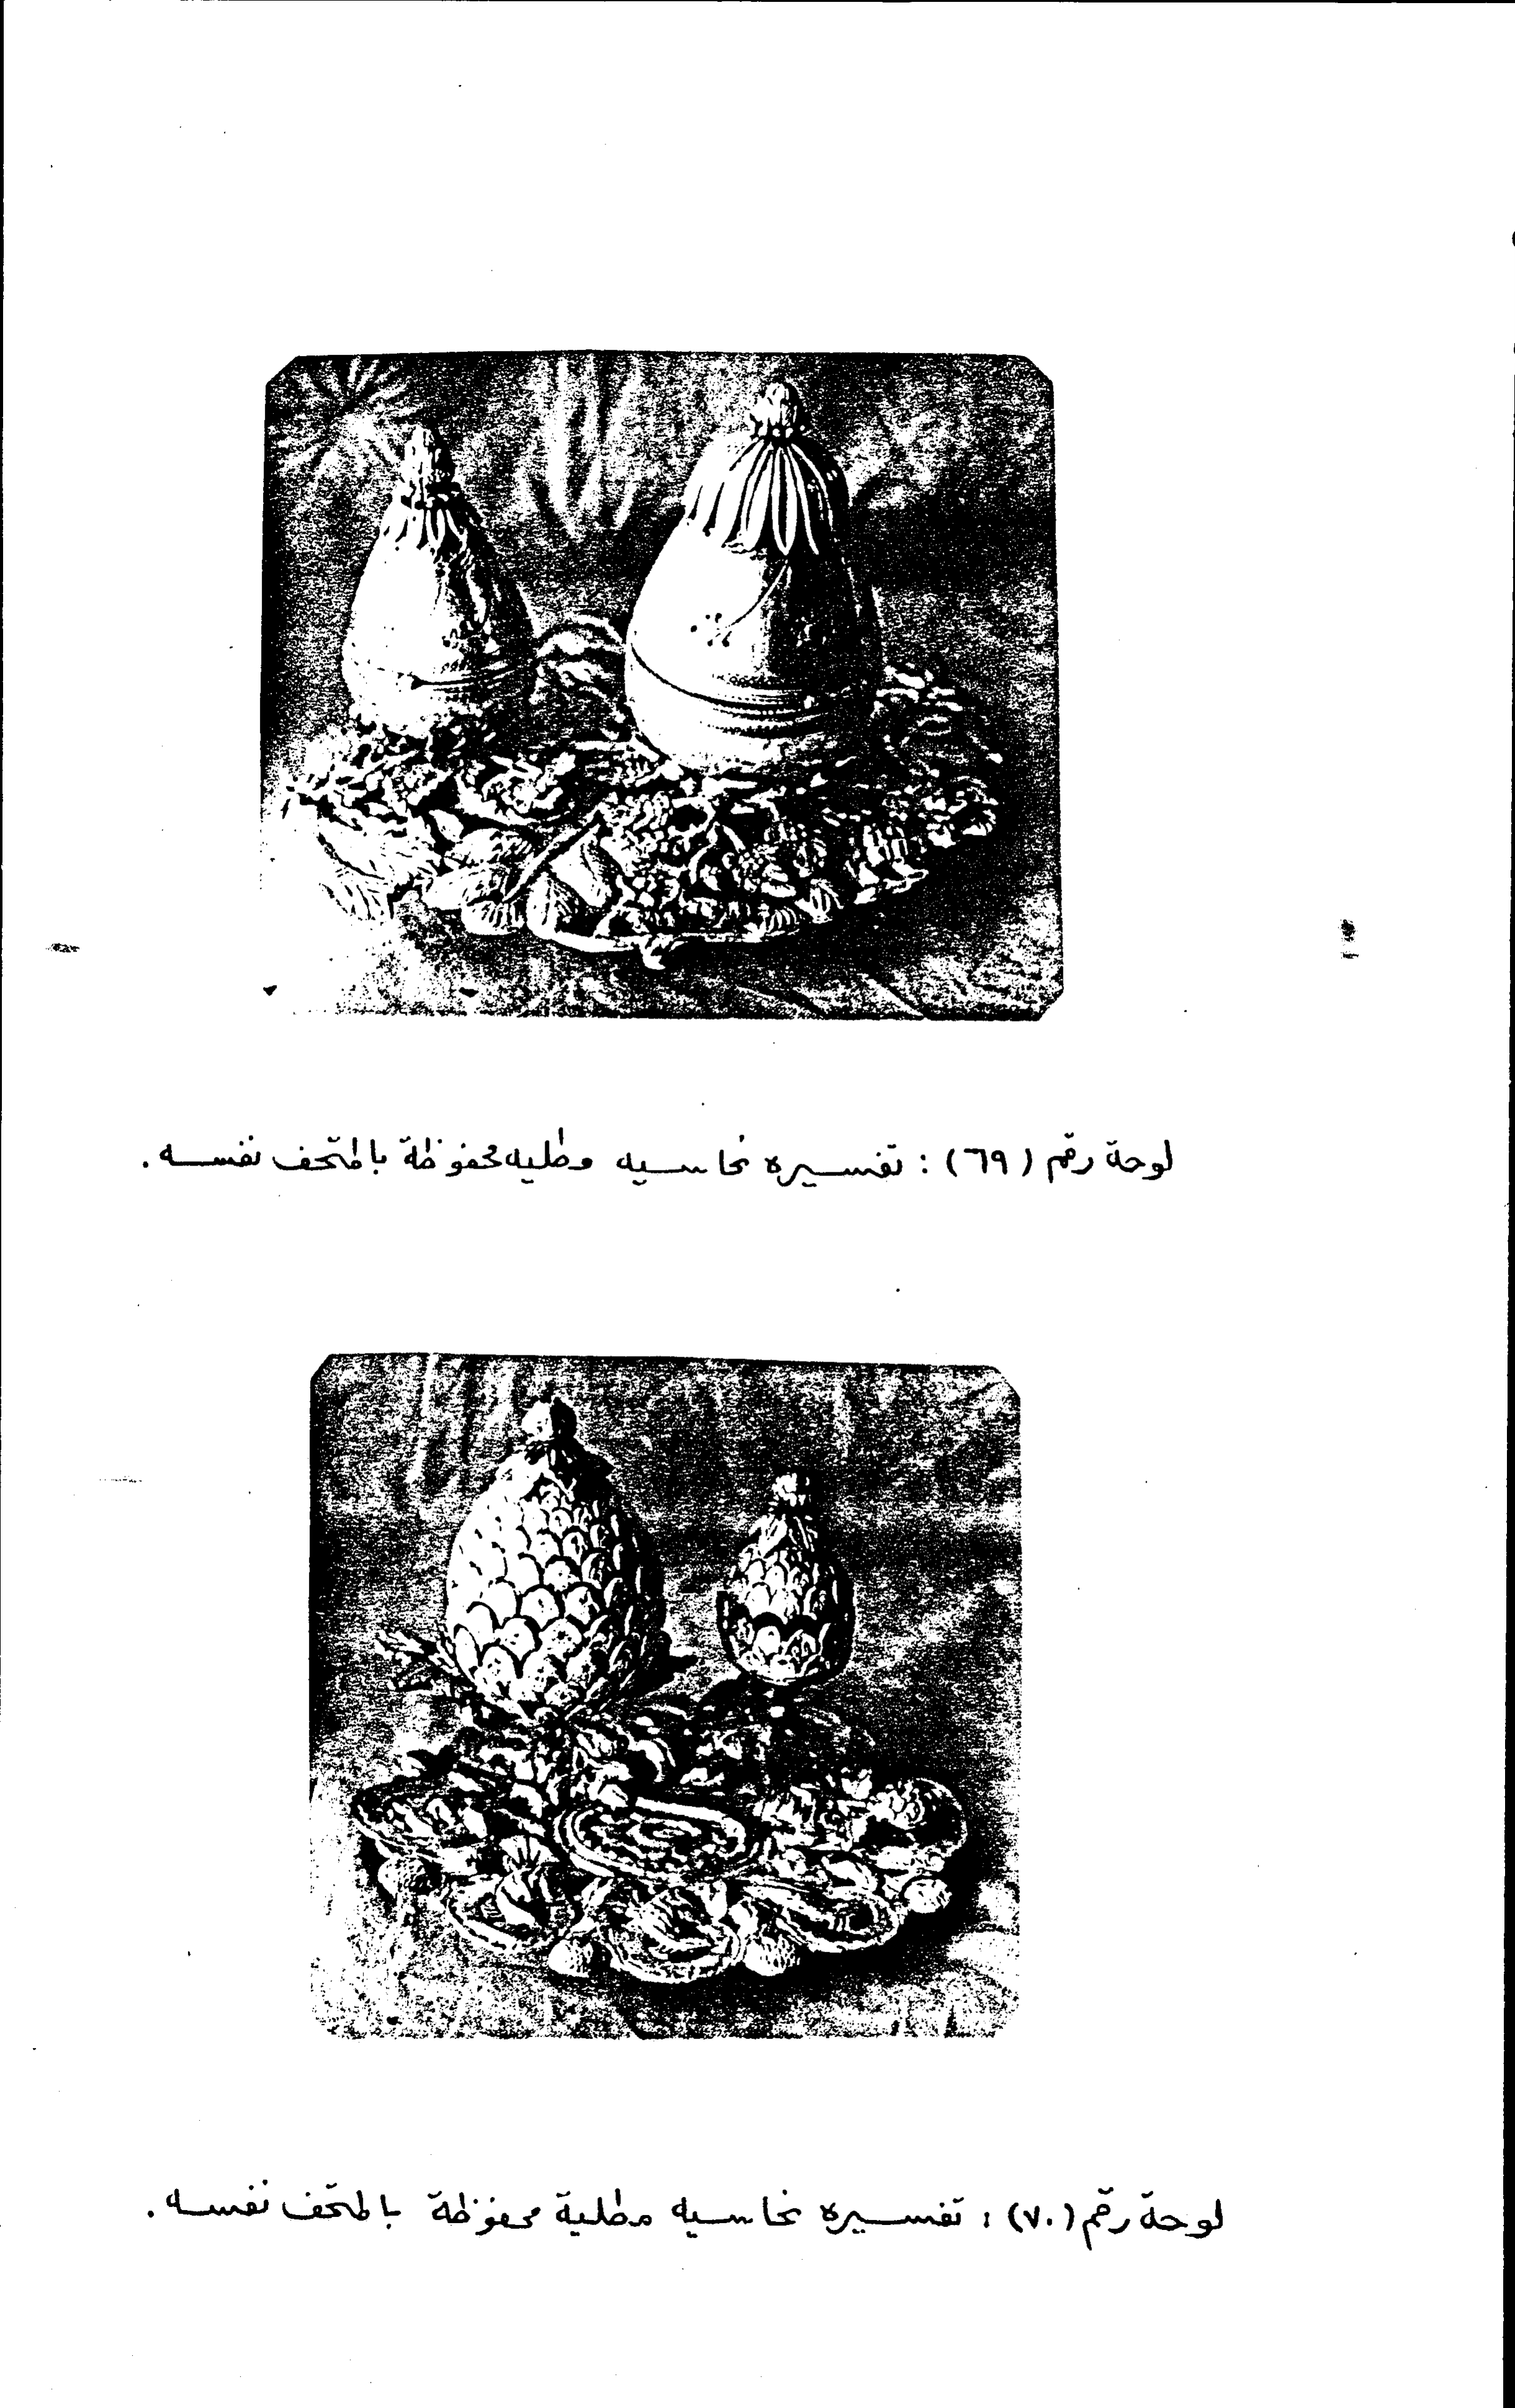 لوحة رقم (٦٩) : تفسيره نحاسيه مطليه محفوظة بالمتحف نفسه .
لوحة رقم (٧٠) : تفسيره نحاسيه مطلية محفوظة بالمتحف نفسه .